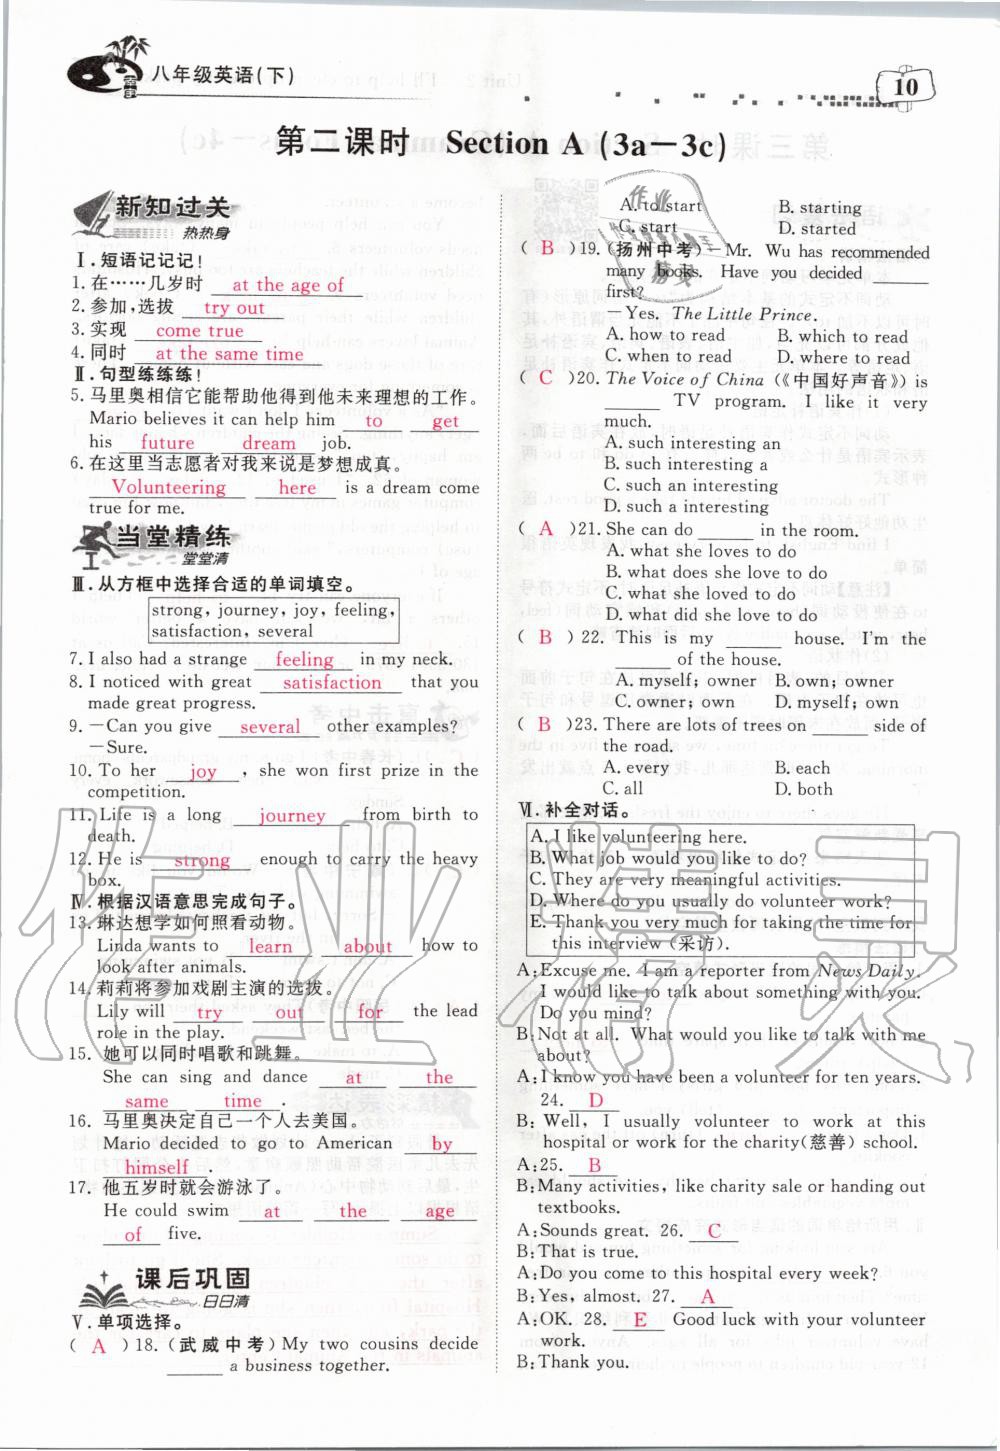 八年级英语(下)
10
第二课时 Section A (3a－3c)
新知过关
热热身
Ⅰ.短语记记记!
1.在……几岁时 at the age of
2.参加,选拔 try out
3.实现 come true
4.同时 at the same time
Ⅱ.句型练练练!
5.马里奥相信它能帮助他得到他未来理想的工作。
Mario believes it can help him to get
his future dream job.
6.在这里当志愿者对我来说是梦想成真。
Volunteering here is a dream come
true for me.
当堂精练
堂堂清
Ⅲ.从方框中选择合适的单词填空。
strong, journey, joy, feeling,
satisfaction, several
7. I also had a strange feeling in my neck.
8. I noticed with great satisfaction that you
made great progress.
9. －Can you give several other examples?
－Sure.
10. To her joy , she won first prize in the
competition.
11. Life is a long journey from birth to
death.
12. He is strong enough to carry the heavy
box.
Ⅳ.根据汉语意思完成句子。
13.琳达想学如何照看动物。
Linda wants to learn about how to
look after animals.
14.莉莉将参加戏剧主演的选拔。
Lily will try out for the lead
role in the play.
15.她可以同时唱歌和跳舞。
She can sing and dance at the
same time .
16.马里奥决定自己一个人去美国。
Mario decided to go to American by
himself .
17.他五岁时就会游泳了。
He could swim at the age
of five.
课后巩固
日日清
Ⅴ.单项选择。
( A )18.(武威中考) My two cousins decide
____ a business together.
A. to start B. starting
C. start D. started
( B )19.(扬州中考)－Mr. Wu has recommended
many books. Have you decided ____
first?
－Yes. The Little Prince.
A. how to read B. which to read
C. when to read D. where to read
( C )20. The Voice of China (《中国好声音》) is
____ TV program. I like it very
much.
A. such interesting an
B. such interesting a
C. such an interesting
D. such a interesting
( A )21. She can do ____ in the room.
A. what she loves to do
B. what does she love to do
C. what she loved to do
D. what did she love to do
( B )22. This is my ____ house. I'm the
____ of the house.
A. myself; owner B. own; owner
C. owner; own D. myself; own
( B )23. There are lots of trees on ____ side of
the road.
A. every B. each
C. all D. both
Ⅵ.补全对话。
A. I like volunteering here.
B. What job would you like to do?
C. They are very meaningful activities.
D. Where do you usually do volunteer work?
E. Thank you very much for taking the time for
this interview (采访).
A: Excuse me. I am a reporter from News Daily.
I would like to talk about something with you.
Do you mind?
B: Not at all. What would you like to talk with me
about?
A: I know you have been a volunteer for ten years.
24. D
B: Well, I usually volunteer to work at this
hospital or work for the charity(慈善) school.
A: 25. B
B: Many activities, like charity sale or handing out
textbooks.
A: Sounds great. 26. C
B: That is true.
A: Do you come to this hospital every week?
B: Yes, almost. 27. A
A: OK. 28. E Good luck with your volunteer
work.
B: Thank you.
作业精灵